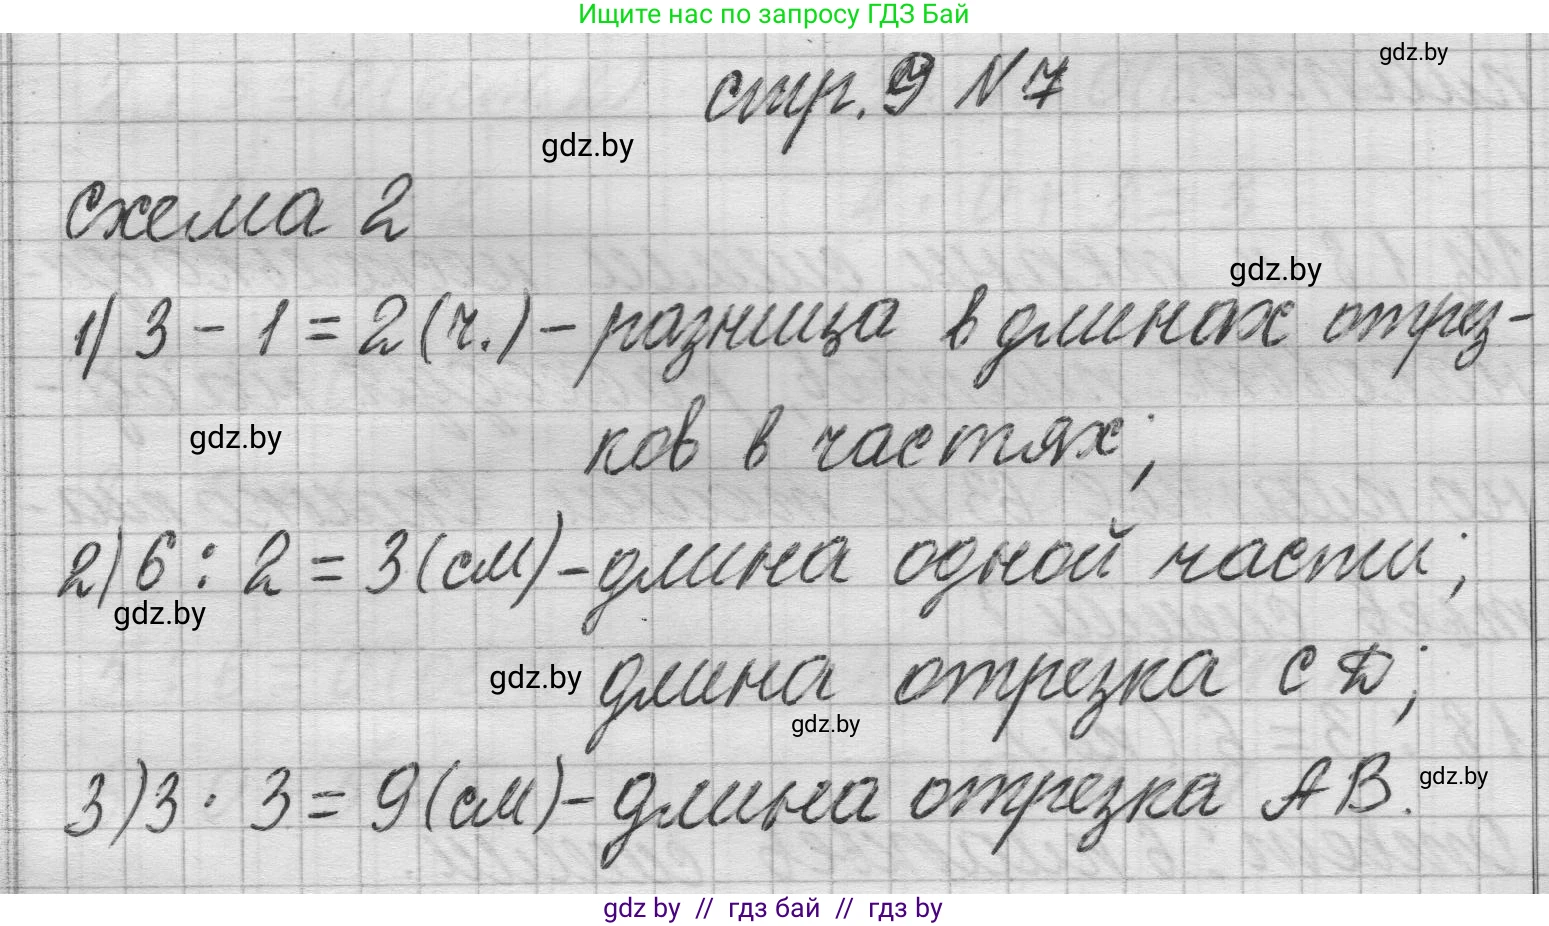 Ищите нас по запросу ГДЗ Бай
gdz.by
стр. 9 N 7
gdz.by
Схема 2
gdz.by
1) 3 - 1 = 2 (ч.) - разница в длинах отрез-
ков в частях;
gdz.by
2) 6 : 2 = 3 (см) - длина одной части;
gdz.by
gdz.by
длина отрезка CD;
gdz.by
3) 3 · 3 = 9 (см) - длина отрезка AB.
gdz.by
gdz by // гдз бай // гдз by